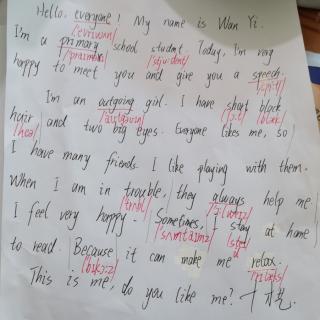 Hello, everyone! My name is Wan Yi.
/'evriwʌn/
I'm a primary school student. Today, I'm very
/'praɪməri/ /'stju:dnt/
happy to meet you and give you a speech.
/spi:tʃ/
I'm an outgoing girl. I have short black
/ʃɔ:t/ /blæk/
hair and two big eyes. Everyone likes me, so
/heə/
I have many friends. I like playing with them.
When I am in trouble, they always help me.
/'trʌbl/
I feel very happy. Sometimes, I stay at home
/'sʌmtaɪmz/ /steɪ/
to read. Because it can make me relax.
/bɪkɔ:z/ /rɪ'læks/
This is me, do you like me?